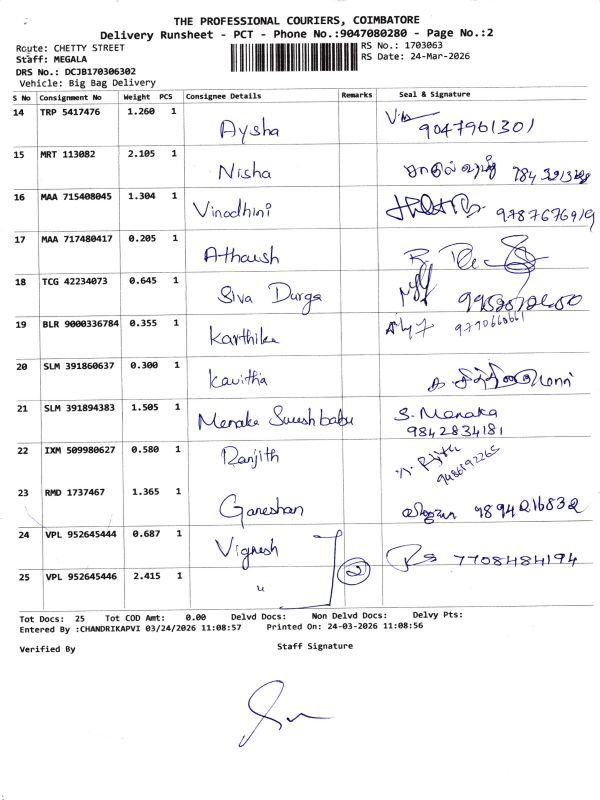 THE PROFESSIONAL COURIERS, COIMBATORE
Delivery Runsheet - PCT - Phone No.:9047080280 - Page No.:2
Route: CHETTY STREET
Staff: MEGALA
DRS No.: DCJB170306302
Vehicle: Big Bag Delivery
RS No.: 1703063
RS Date: 24-Mar-2026
S No Consignment No Weight PCS Consignee Details Remarks Seal & Signature
14 TRP 5417476 1.260 1 Aysha 9047961301
15 MRT 113082 2.105 1 Nisha
16 MAA 715408045 1.304 1 Vinodhini 9787676919
17 MAA 717480417 0.205 1
18 TCG 42234073 0.645 1 Siva Durga
19 BLR 9000336784 0.355 1 Karthika
20 SLM 391860637 0.300 1 Kavitha
21 SLM 391894383 1.505 1 Menaka Sureshbabu S. Menaka
9842834181
22 IXM 509980627 0.580 1 Ranjith 9486192265
23 RMD 1737467 1.365 1 Ganeshan 9894216832
24 VPL 952645444 0.687 1 Vignesh 7708484194
25 VPL 952645446 2.415 1 " 2
Tot Docs: 25 Tot COD Amt: 0.00 Delvd Docs: Non Delvd Docs: Delvy Pts:
Entered By :CHANDRIKAPVI 03/24/2026 11:08:57 Printed On: 24-03-2026 11:08:56
Verified By Staff Signature